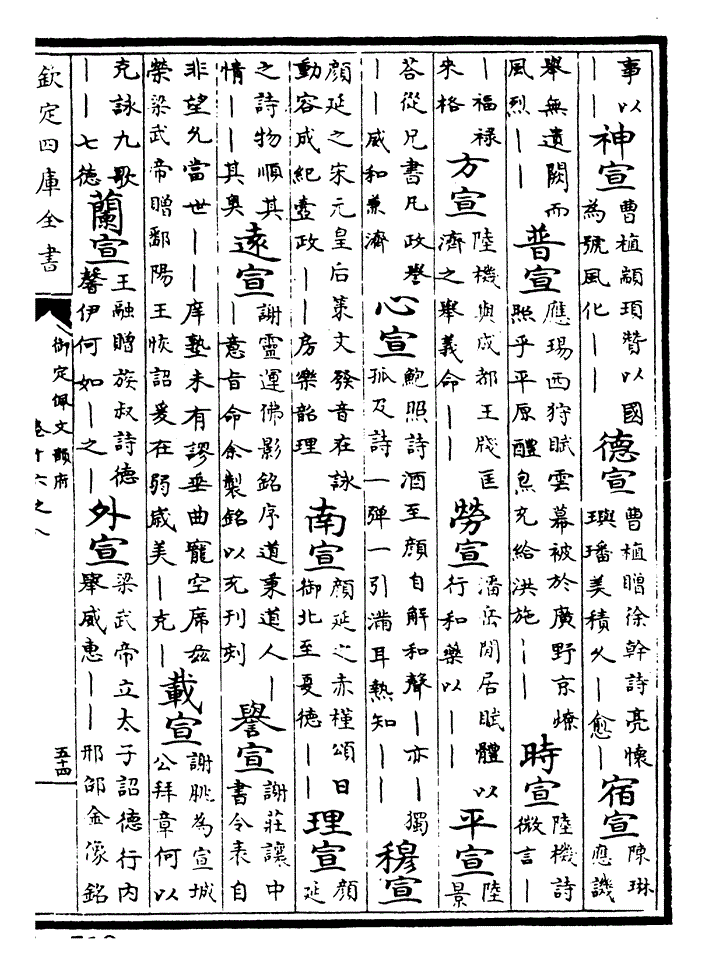 事以
｜｜
神宣
曹植顓頊贊以國
為號風化｜｜
德宣
曹植贈徐幹詩亮懷
璵璠美積久｜愈｜
宿宣
陳琳
應譏
舉無遺闕而
風烈｜｜
普宣
應瑒西狩賦雲幕被於廣野京燎
照乎平原醴烹充給洪施｜｜
時宣
陸機詩
微言｜｜
｜福禄
来格
方宣
陸機與成都王牋匡
濟之舉義命｜｜
勞宣
潘岳閒居賦體以
行和藥以｜｜
平宣
陸
景
荅從兄書凡政譽
｜｜威和兼濟
心宣
鮑照詩酒至顔自解和聲｜亦｜獨
孤及詩一彈一引滿耳熟知｜｜
穆宣
顔延之宋元皇后策文發音在詠
動容成紀壼政｜｜房樂韶理
南宣
顔延之赤槿頌日
御北至夏德｜｜
理宣
顔
延
之詩物順其
情｜｜其奥
遠宣
謝靈運佛影銘序道秉道人｜
｜意旨命余製銘以充刊刻
譽宣
謝莊讓中
書令表自
非望允當世｜｜庠塾未有謬垂曲寵空席兹
榮梁武帝贈鄱陽王恢詔爰在弱嵗美｜充｜
載宣
謝朓為宣城
公拜章何以
克詠九歌
｜｜七德
蘭宣
王融贈族叔詩德
馨伊何如｜之｜
外宣
梁武帝立太子詔德行内
舉威惠｜｜邢邵金像銘
欽定四庫全書
御定佩文韻府
卷十六之八
五十四